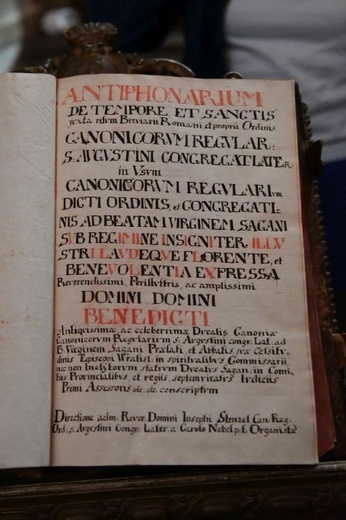 ANTIPHONARIUM
DE TEMPORE ET SANCTIS
juxta ritum Breviarii Romani et proprii Ordinis
CANONICORVM REGVLAR:
S. AVGVSTINI CONGREGAT: LATER:
in Vsvm
CANONICORVM REGVLARIvm
DICTI ORDINIS, et CONGREGATI-
NIS AD BEATAM VIRGINEM, SAGANI
SVB REGIMINE INSIGNITER, ILLV
STRI LAVDEQVE FLORENTE, et
BENEVOLENTIA EXPRESSA
Reverendissimi, Perillvstris, ac amplissimi
DOMINI DOMINI
BENEDICTI
Antiqvissimæ, ac celeberrimæ Canoniæ
Canonicorvm Regvlarivm S. Avgvstini congr. Lat. ad
B. Virginem Sagani Prælati, et Abbatis,
Episcopi Wratisl. in spiritvalibvs Commissarii,
nec non Inclytorvm statvvm Sagan. in
Provincialibvs, et regiis,
Primi Assessoris
Directione adm. Rever. Domini Iosephi Stenzel Can: Reg:
Ord. S. Avgvstini Congr. Later. a Carolo Nobel p.t. Organista